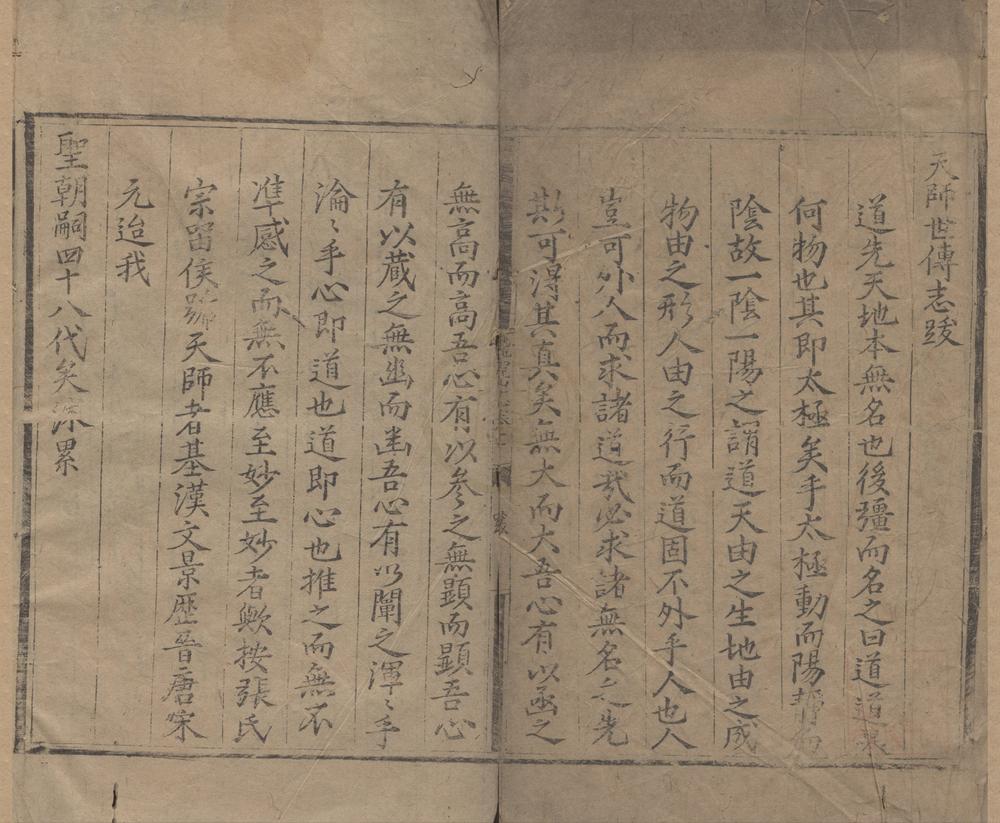 天師世傳志跋
道先天地本無名也後彊而名之曰道道果
何物也其即太極矣乎太極動而陽靜而
陰故一陰一陽之謂道天由之生地由之成
物由之形人由之行而道固不外乎人也人
豈可外人而求諸道哉必求諸無名之先
斯可得其真矣無大而大吾心有以函之
無高而高吾心有以參之無顯而顯吾心
有以藏之無幽而幽吾心有以闡之渾〻乎
淪〻乎心即道也道即心也推之而無不
準感之而無不應至妙至妙者歟按張氏
宗留侯號天師者基漢文景歷晉唐宋
元迨我
聖朝嗣四十八代矣深累